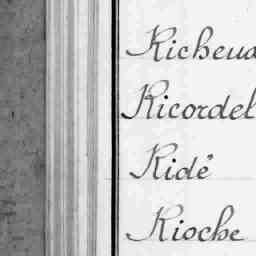 Richeua
Ricordel
Ridé
Rioche